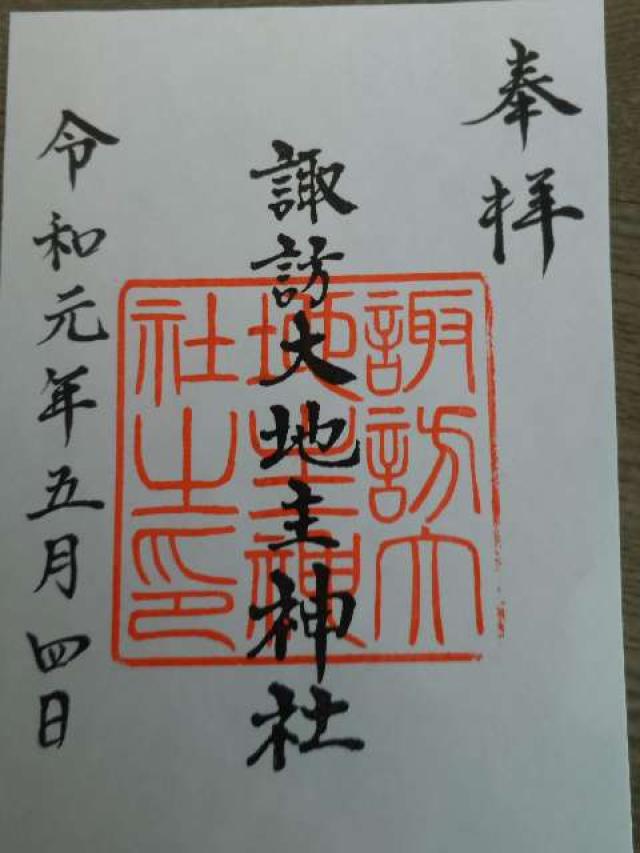 奉拝
諏訪大地主神社
諏訪大
地主神
社之印
令和元年五月四日